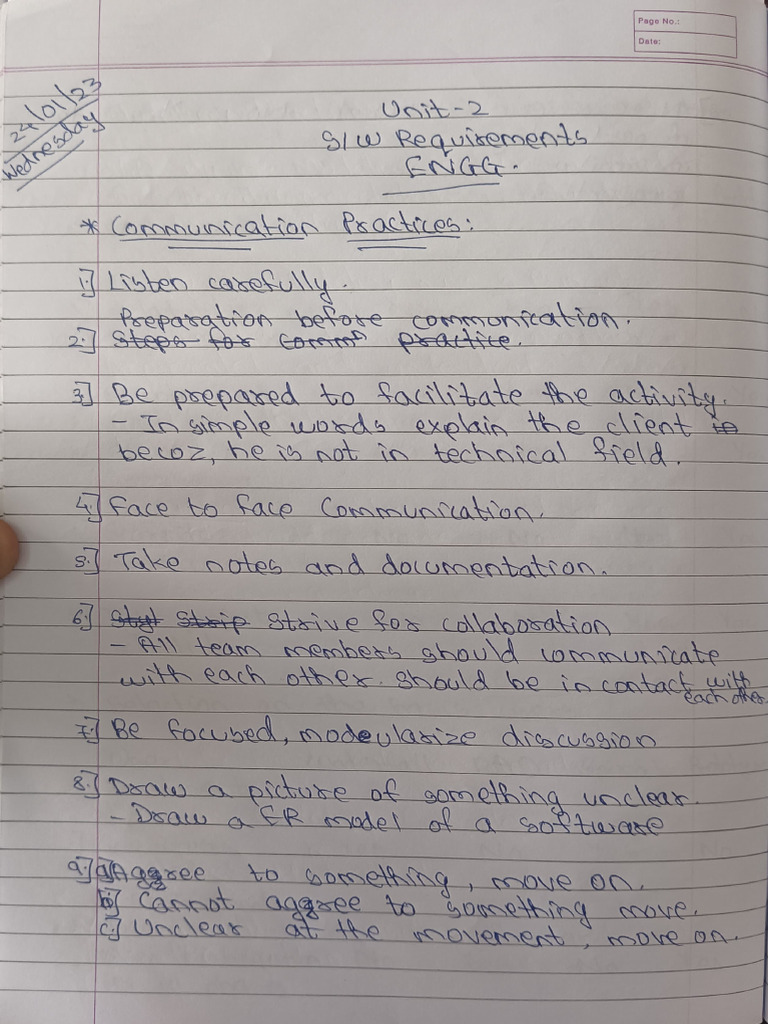 Page No.:
Date:
24/01/23
Wednesday
Unit-2
S/W Requirements
ENGG.
* Communication Practices:
1.] Listen carefully.
Preparation before communication.
2.] Steps for comm practice.
3.] Be prepared to facilitate the activity.
- In simple words explain the client to
becoz, he is not in technical field.
4.] Face to face Communication.
5.] Take notes and documentation.
6.] Strip strive for collaboration
- All team members should communicate
with each other. should be in contact with
each other.
7.] Be focused, modeularize discussion
8.] Draw a picture of something unclear.
- Draw a ER model of a software
9.] a] Aggree to something, move on.
b] Cannot aggree to something move.
c.] Unclear at the movement, move on.